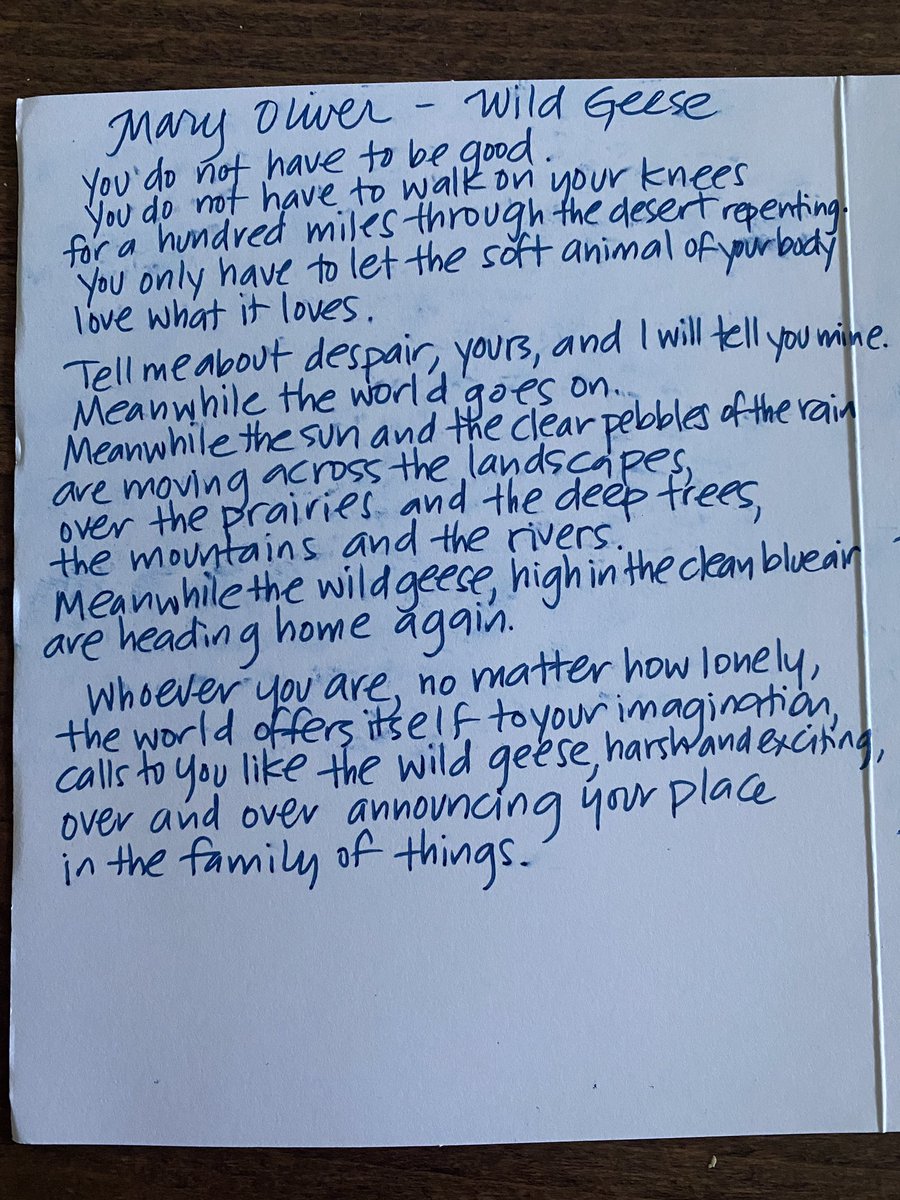 Mary Oliver - Wild Geese
You do not have to be good.
You do not have to walk on your knees
for a hundred miles through the desert repenting.
You only have to let the soft animal of your body
love what it loves.
Tell me about despair, yours, and I will tell you mine.
Meanwhile the world goes on.
Meanwhile the sun and the clear pebbles of the rain
are moving across the landscapes,
over the prairies and the deep trees,
the mountains and the rivers.
Meanwhile the wild geese, high in the clean blue air
are heading home again.
Whoever you are, no matter how lonely,
the world offers itself to your imagination,
calls to you like the wild geese, harsh and exciting,
over and over announcing your place
in the family of things.